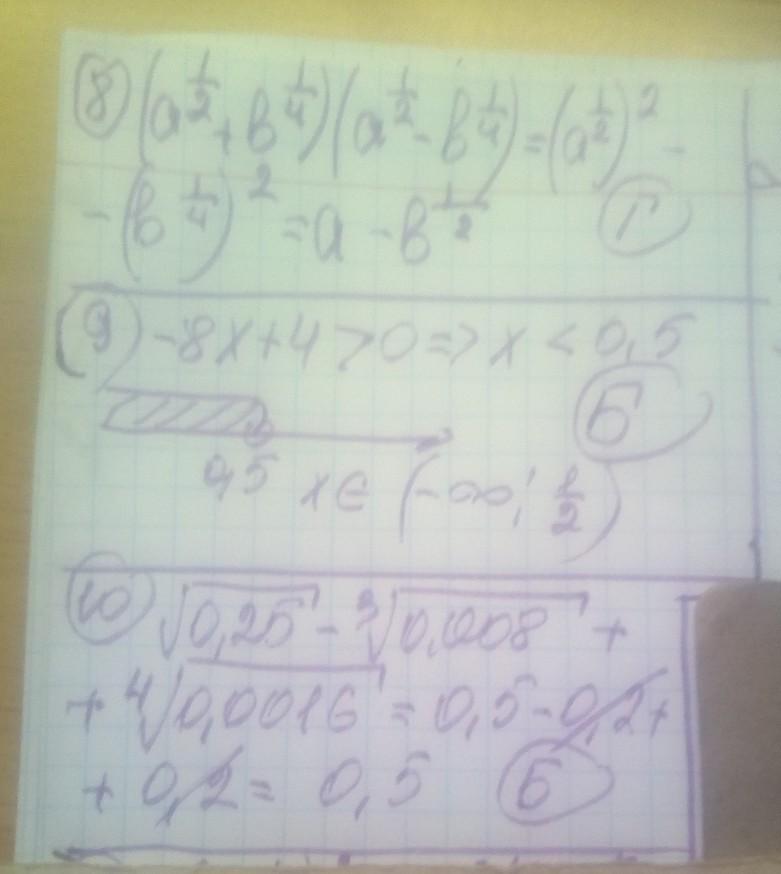 8 (a^{1/2} + b^{1/4})(a^{1/2} - b^{1/4}) = (a^{1/2})^2 -
- (b^{1/4})^2 = a - b^{1/2} Г
9) -8x+4 > 0 => x < 0,5
Б
0,5 x ∈ (-∞; 1/2)
10 √0,25 - ∛0,008 +
+ ∜0,0016 = 0,5 - 0,2 +
+ 0,2 = 0,5 Б